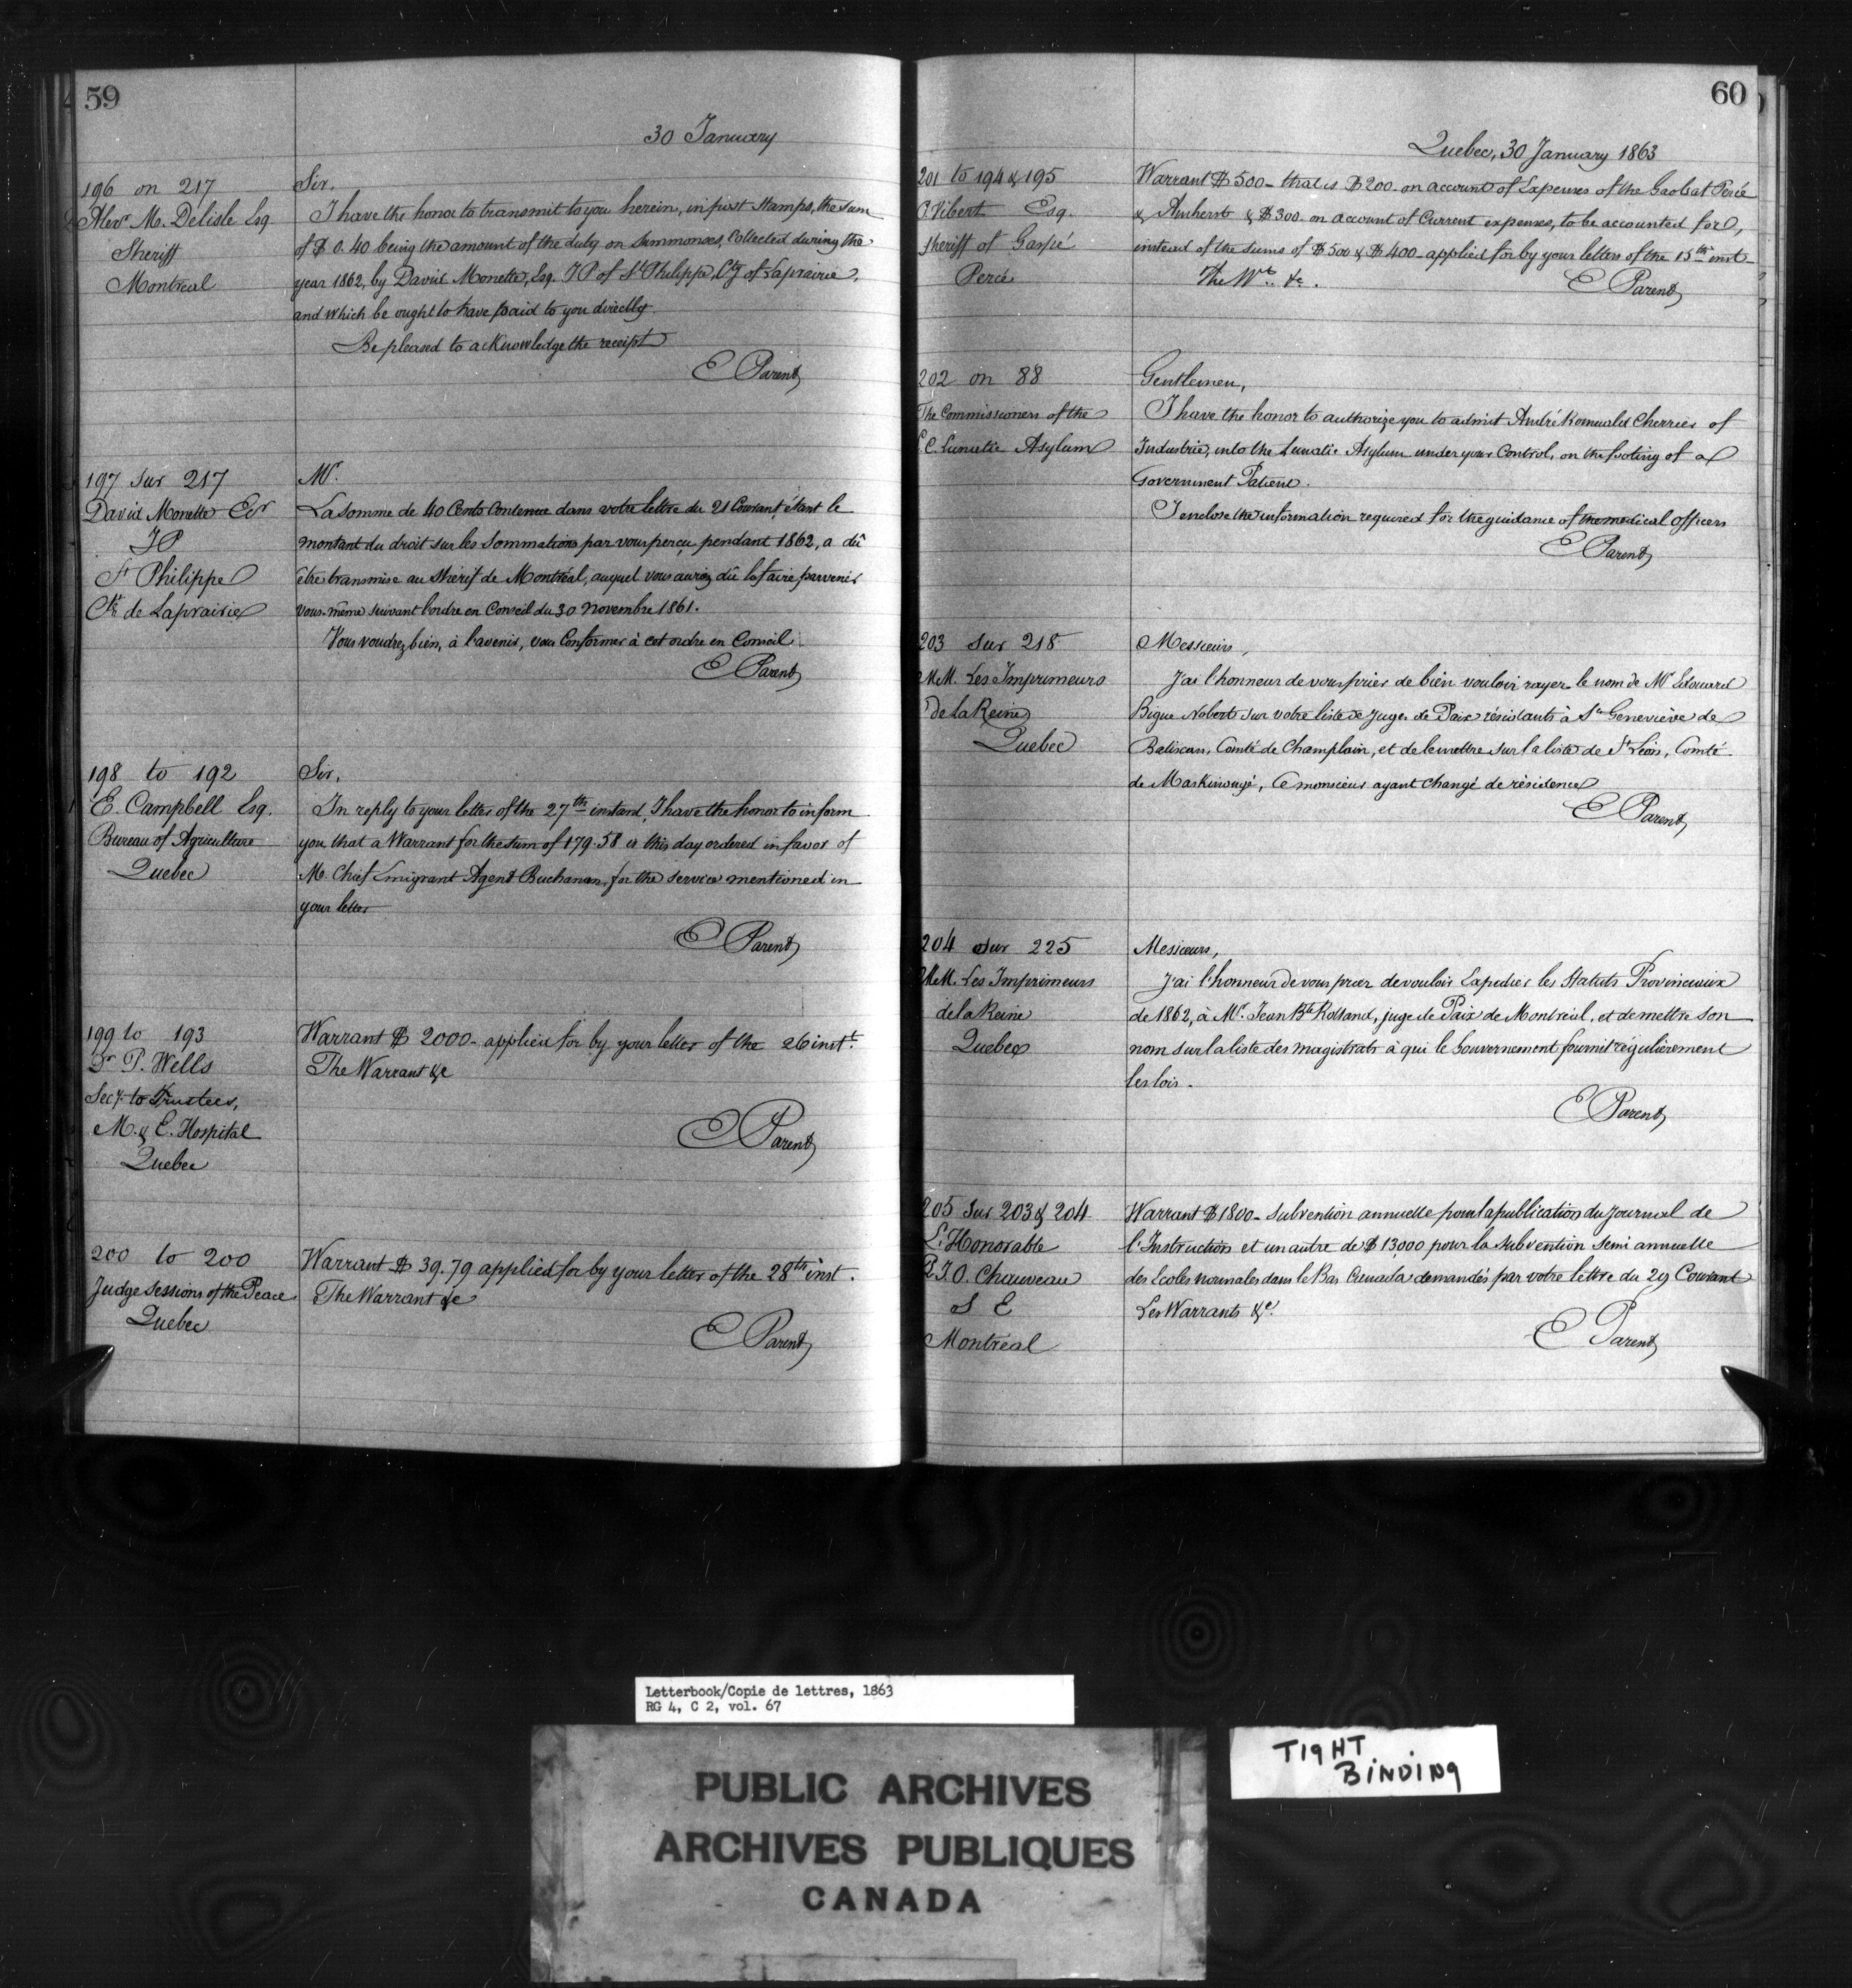 59
30 January
196 on 217
Alexr M. Delisle Esq
Sheriff
Montreal
Sir,
I have the honor to transmit to you herein, in post Stamps, the sum
of $ 0.40 being the amount of the duty on Summonses, Collected during the
year 1862, by David Monette, Esq. JP of St Philippe, Cty of Laprairie,
and which he ought to have paid to you directly.
Be pleased to acKnowledge the receipt
E Parent
197 sur 217
David Monette Ecr
JP
St Philippe
Cté de Laprairie
Mr.
La somme de 40 Cents Contenue dans votre lettre du 21 Courant, étant le
montant du droit sur les Sommations par vous perçu pendant 1862, a dû
être transmise au Shérif de Montréal, auquel vous auriez dû la faire parvenir
vous-même suivant l'ordre en Conseil du 30 Novembre 1861.
Vous voudrez bien, à l'avenir, vous Conformer à cet ordre en Conseil
E Parent
198 to 192
E. Campbell Esq.
Bureau of Agriculture
Quebec
Sir,
In reply to your letter of the 27th instand, I have the honor to inform
you that a Warrant for the sum of 179.58 is this day ordered in favor of
M. Chief Emigrant Agent Buchanan, for the service mentioned in
your letter
E Parent
199 to 193
Dr P. Wells
Secy to Trustees,
M. & E. Hospital
Quebec
Warrant $ 2000- applied for by your letter of the 26 inst.
The Warrant &c
E Parent
200 to 200
Judge Sessions of the Peace
Quebec
Warrant $ 39.79 applied for by your letter of the 28th inst.
The Warrant &c
E Parent
60
Quebec, 30 January 1863
201 to 194 & 195
P. Vibert Esq.
Sheriff of Gaspé
Percé
Warrant $ 500- that is $ 200- on account of Expenses of the Gaols at Percé
& Amherst & $ 300. on account of Current expenses, to be accounted for,
instead of the sums of $ 500 & $ 400- applied for by your letters of the 15th inst-
The Wt. &c.
E Parent
202 on 88
The Commissioners of the
L.C. Lunatic Asylum
Gentlemen,
I have the honor to authorize you to admit André Romuald Cherrier of
Industrie, into the Lunatic Asylum under your Control, on the footing of a
Government Patient.
I enclose the information required for the guidance of the medical officers
E Parent
203 sur 218
MM. Les Imprimeurs
de la Reine
Quebec
Messieurs,
J'ai l'honneur de vous prier de bien vouloir rayer le nom de Mr Edouard
Bigue Nobert sur votre liste de Juges de Paix résidants à Ste Geneviève de
Batiscan, Comté de Champlain, et de le mettre sur la liste de St Léon, Comté
de Maskinongé, Ce monsieur ayant changé de résidence
E Parent
204 sur 225
MM. Les Imprimeurs
de la Reine
Quebec
Messieurs,
J'ai l'honneur de vous prier de vouloir Expédier les Statuts Provinciaux
de 1862, à Mr. Jean Bte Rolland, juge de Paix de Montréal, et de mettre son
nom sur la liste des magistrats à qui le Gouvernement fournit régulièrement
les lois.
E Parent
205 Sur 203 & 204
L'Honorable
P.J.O. Chauveau
S E
Montréal
Warrant $ 1800- Subvention annuelle pour la publication du Journal de
l'Instruction et un autre de $ 13,000 pour la Subvention Semi annuelle
des Ecoles normales dans le Bas Canada demandés par votre lettre du 29 Courant
Les Warrants &c.
E Parent
Letterbook/Copie de lettres, 1863
RG 4, C 2, vol. 67
TIGHT
BINDING
PUBLIC ARCHIVES
ARCHIVES PUBLIQUES
CANADA